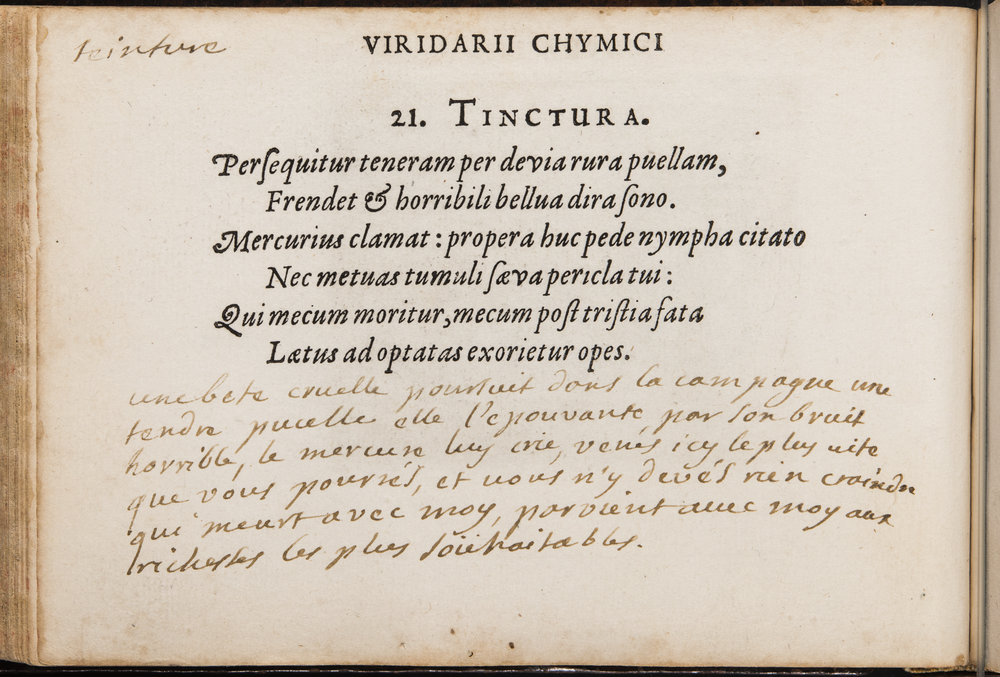 teinture
VIRIDARII CHYMICI
21. TINCTURA.
Perſequitur teneram per devia rura puellam,
Frendet & horribili bellua dira ſono.
Mercurius clamat : propera huc pede nympha citato
Nec metuas tumuli ſæva pericla tui :
Qui mecum moritur, mecum poſt triſtia fata
Lætus ad optatas exorietur opes.
une bete cruelle poursuit dans la campagne une
tendre pucelle elle l'epouvante par son bruit
horrible, le mercure luy crie, venés icy le plus vite
que vous pourrés, et vous n'y devés rien craindre
qui meurt avec moy, parvient avec moy aux
richesses les plus souhaitables.